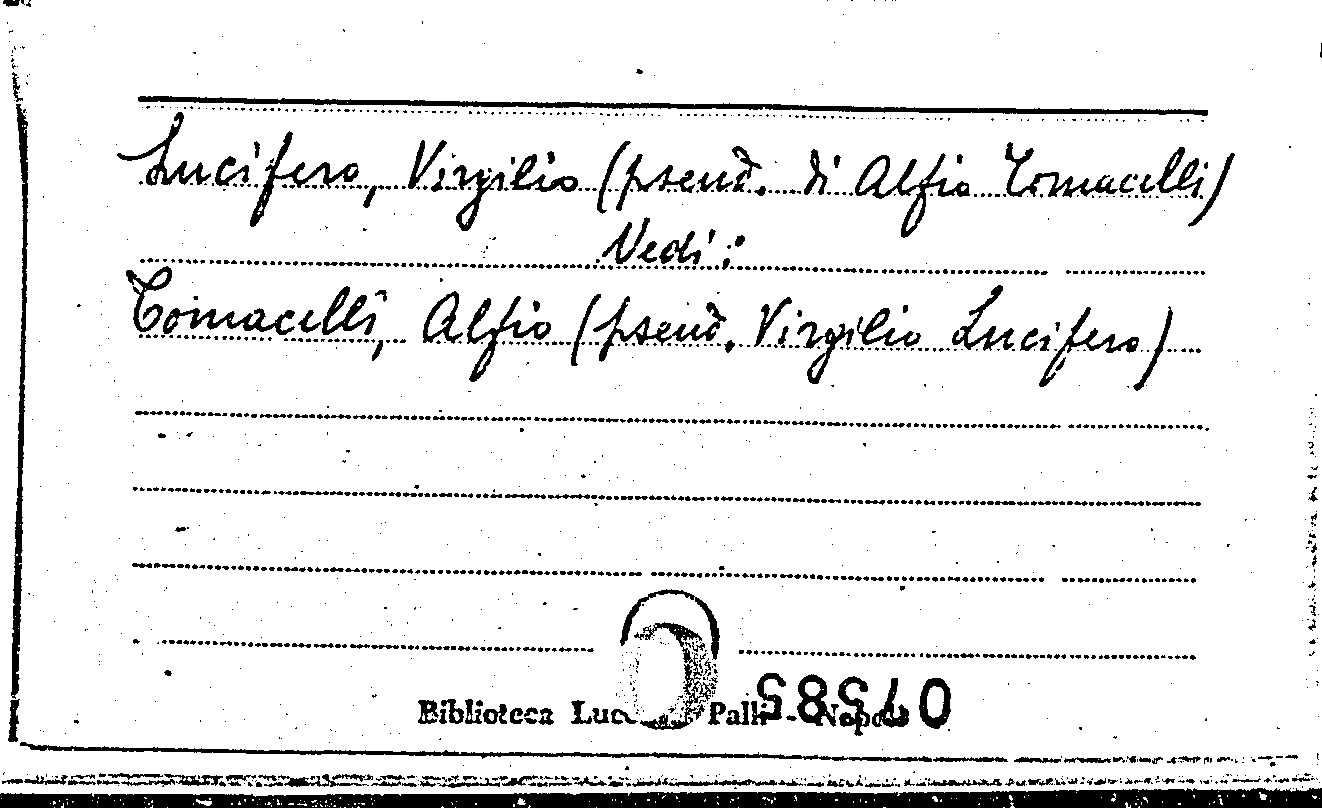 Lucifero, Virgilio (pseud. di Alfio Tomacelli)
Vedi:
Tomacelli, Alfio (pseud. Virgilio Lucifero)
Biblioteca Palli - Napoli